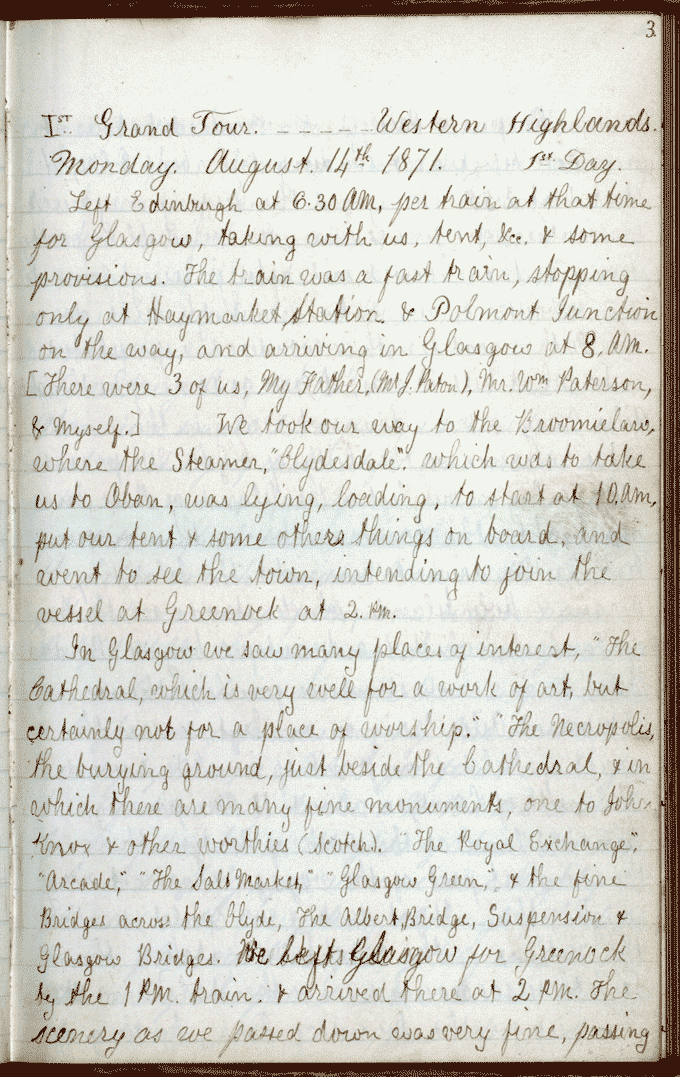 3
Iˢᵗ Grand Tour. _ _ _ _ _ Western Highlands.
Monday. August. 14th 1871. 1st Day.
Left Edinburgh at 6.30 AM, per train at that time
for Glasgow, taking with us, tent, &c. & some
provisions. The train was a fast train, stopping
only at Haymarket Station & Polmont Junction
on the way, and arriving in Glasgow at 8. AM.
[There were 3 of us, My Father, (Mr J. Paton), Mr. Wm Paterson,
& Myself.] We took our way to the Broomielaw,
where the Steamer, "Clydesdale". which was to take
us to Oban, was lying, loading, to start at 10. AM,
put our tent & some others things on board, and
went to see the town, intending to join the
vessel at Greenock at 2. P.M.
In Glasgow we saw many places of interest, "The
Cathedral, which is very well for a work of art, but
certainly not for a place of worship." "The Necropolis,
the burying ground, just beside the Cathedral, & in
which there are many fine monuments, one to John
Knox & other worthies (Scotch). "The Royal Exchange",
"Arcade," "The Salt Market," "Glasgow Green," & the fine
Bridges across the Clyde, The Albert Bridge, Suspension &
Glasgow Bridges. We left Glasgow for Greenock
by the 1 P.M. train. & arrived there at 2 P.M. The
scenery as we passed down was very fine, passing